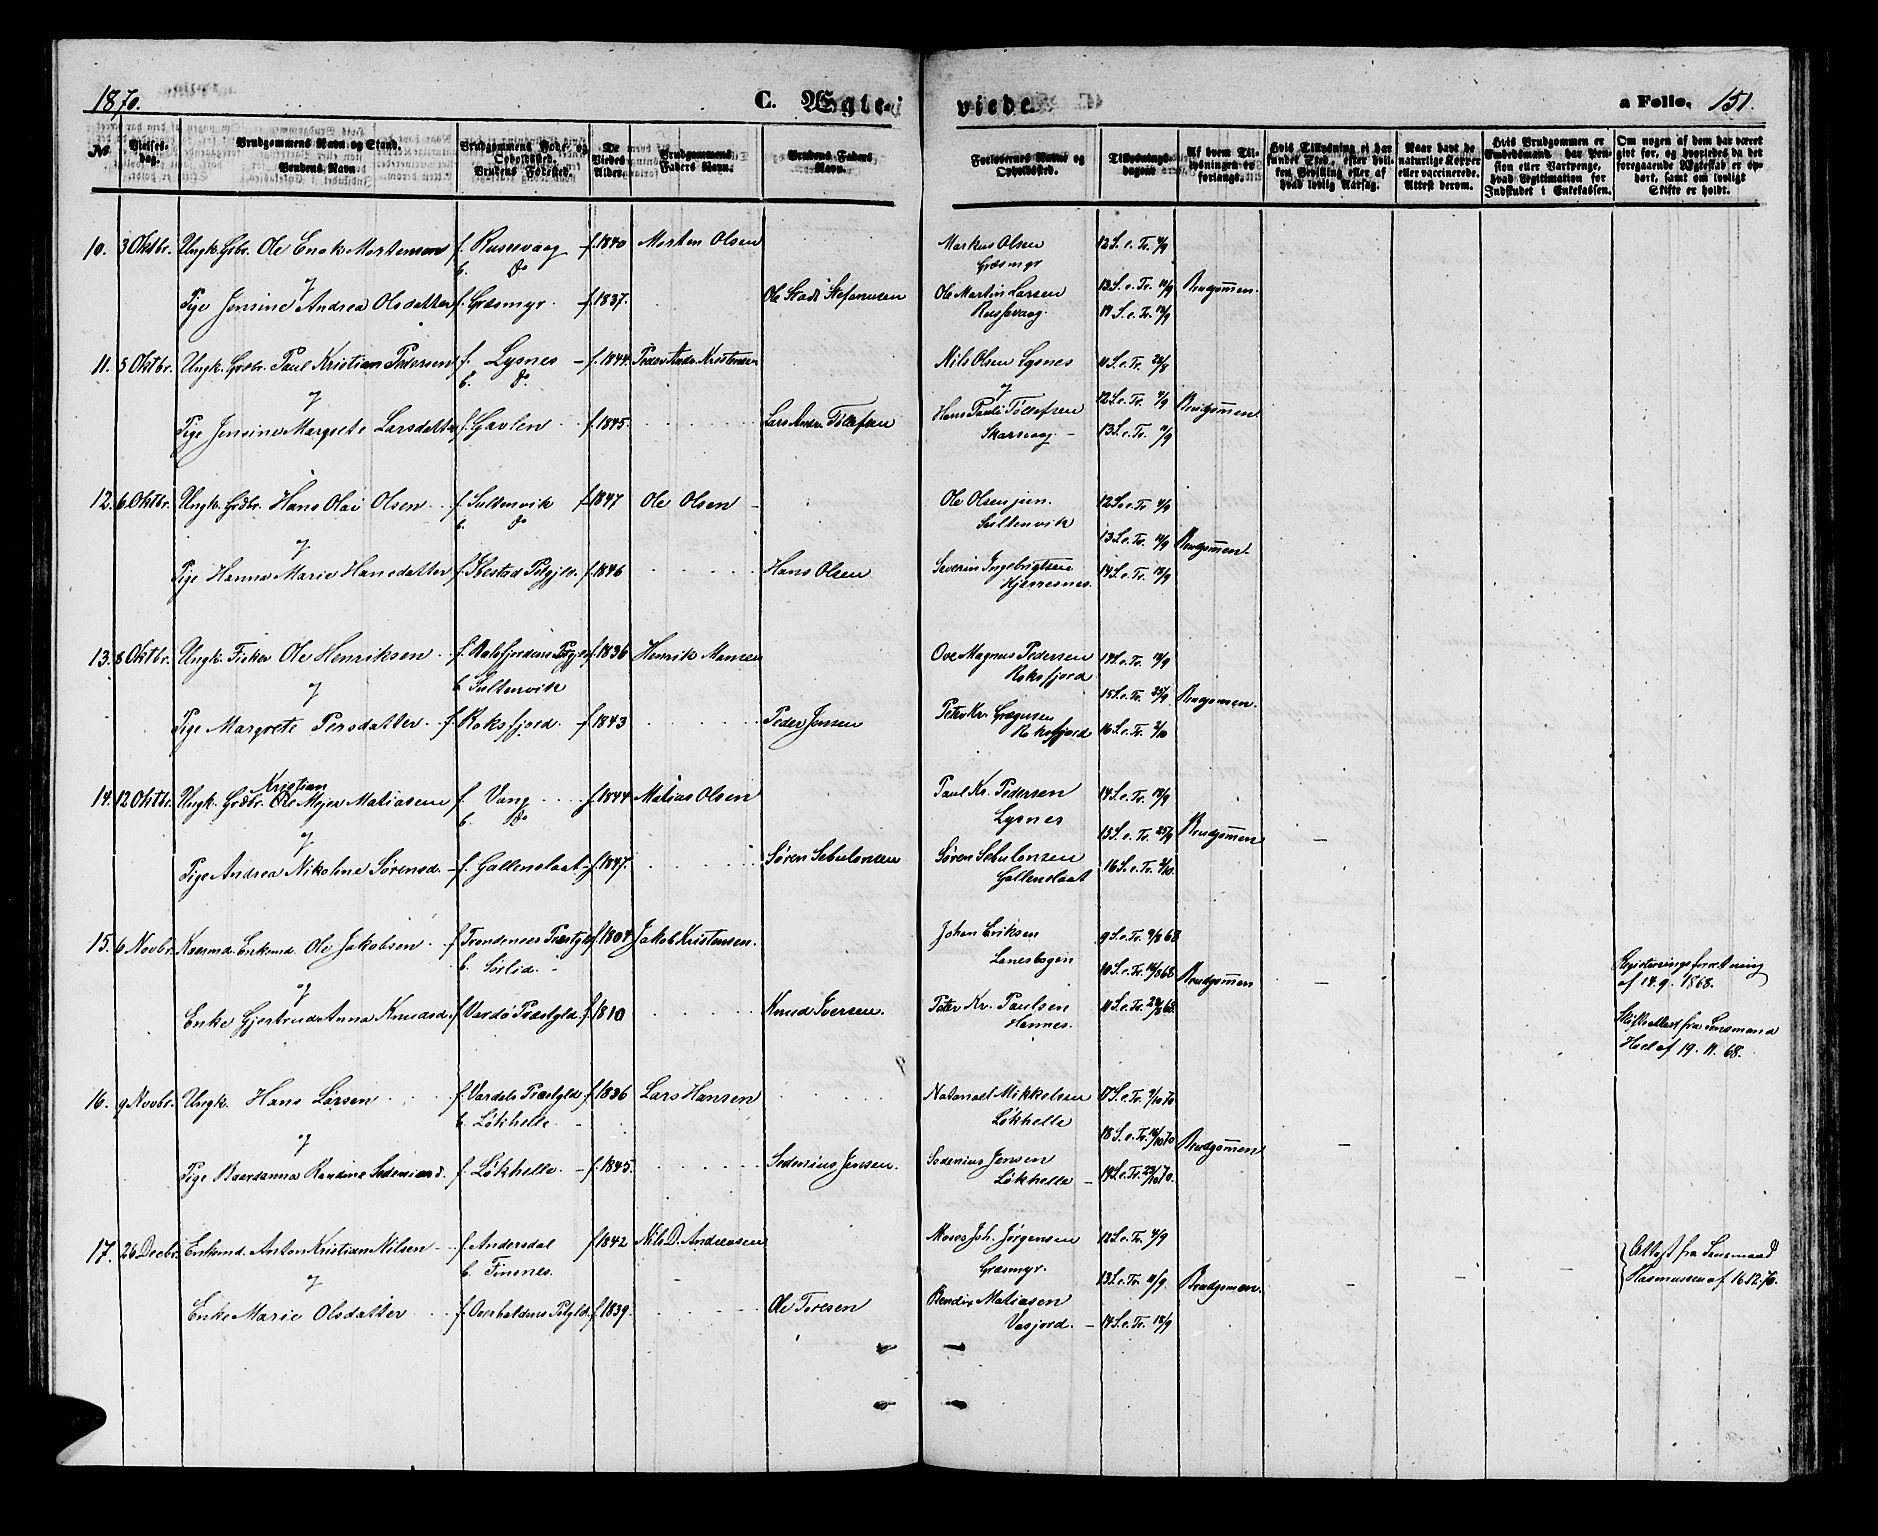 1870.
C. Ægte-
viede.
a Folio. 151.
№
Vielses-
dag.
Brudgommens Navn og Stand.
Brudens Navn.
Brudgommens Føde- og
Opholdssted.
Brudens Fødested.
De
Viedes
Alder.
Brudgommens
Faders Navn.
Brudens Faders
Navn.
Forlovernes Navne og
Opholdssted.
Tillysnings-
dagene
Af hvem Til-
lysningen er
forlangt.
Hvis Tillysning ei har
fundet Sted, efter hvil-
ken Bevilling eller af
hvad lovlig Aarsag.
Naar havt de
naturlige Kopper
eller vaccinerede.
Attest derom.
Hvis Brudgommen er
Embedsmand, har Pen-
sion eller Vartpenge,
hvad Legitimation for
Indskudet i Enkekassen.
Om nogen af dem har været
givt før, og hvorledes da det
foregaaende Ægteskab er op-
hørt, samt om lovligt
Skifte er holdt.
10. 3 Oktbr. Ungk. Grbr. Ole Enok Mortensen f. Russevaag f. 1840 Morten Olsen Markus Olsen 12 S. e. Tr. 4/9
b. do Græsmyr
og
Pige Jensine Andrea Olsdatter f. Græsmyr f. 1837. Ole Stadt Stefanusen Ole Martin Larsen 13 S. e. Tr. 11/9 Brudgommen.
Russevaag. 14 S. e. Tr. 18/9
11. 5 Oktbr. Ungk. Grdbr. Paul Kristian Pedersen f. Lysnes f. 1844. Peder Andr. Kristensen Nils Olsen Lysnes 11 S. e. Tr. 28/8
b. do
og og 12 S. e. Tr. 4/9 Brudgommen
Pige Jensine Margrete Larsdatter f. Gavlen f. 1845. Lars Andr. Tollefsen Hans Pauli Tollefsen
Skarsvaag 13 S. e. Tr. 11/9
12. 6 Oktbr. Ungk. Grdbr. Hans Olai Olsen f. Sultenvik f. 1847 Ole Olsen Ole Olsen jun. 12 S. e. Tr. 4/9
b. do Sultenvik
og 13 S. e. Tr. 11/9 Brudgommen.
Pige Hanna Marie Hansdatter f. Ibestad Prgjld. f. 1846 Hans Olsen Severin Ingebrigtsen 14 S. e. Tr. 18/9
Hjerresnes.
13. 8 Oktbr. Ungk. Fisker Ole Henriksen f. Balsfjordens Prgjld f. 1836 Henrik Hansen Ove Magnus Pedersen 14 S. e. Tr. 18/9
b. Sultenvik Roksfjord
og 15 S. e. Tr. 25/9 Brudgommen.
Pige Margrete Persdatter f. Roksfjord f. 1843 Peder Jensen Peter Kr. Gregersen
Roksfjord 16 S. e. Tr. 2/10
14. 12 Oktbr. Ungk. Grdbr. Ole Kristian Mejer Matiasen f. Vang f. 1844 Matias Olsen Paul Kr. Pedersen 14 S. e. Tr. 18/9
b. do Lysnes
og 15 S. e. Tr. 25/9 Brudgommen
Pige Andrea Nikoline Sørensd. f. Gallenslaat f. 1847. Søren Sebulonsen Søren Sebulonsen 16 S. e. Tr. 2/10.
Gallenslaat
15. 6 Novbr. Enkemd. Ole Jakobsen f. Trondenes Præstgjld f. 1804 Jakob Kristensen. Johan Eriksen 9 S. e. Tr. 9/8 68
b. Sørlid. Lanesbogen
og 10 S. e. Tr. 16/8 68 Brudgommen Registreringsforretning
af 14. 9. 1868.
Enke Gjertrud Anna Knudsd. f. Vardø Præstgjld. f. 1810 Knud Iversen. Peter Kr. Paulsen 11 S. e. Tr. 23/8 68.
Hannes. Skifteattest fra Lensmand
Hoel af 19. 11. 68.
16. 9 Novbr. Ungk. Hans Larsen f. Vardals Præstgjld. f. 1836 Lars Hansen Natanael Mikkelsen 17 S. e. Tr. 9/10 70
b. Løkhelle Løkhelle
og 18 S. e. Tr. 16/10 70 Brudgommen
Pige Baardanna Sedeniusd. f. Løkhelle f. 1845. Sedenius Jensen. Sedenius Jensen
Løkhelle 19 S. e. Tr. 23/10 70.
17. 26 Decbr. Enkemd. Anton Kristian Nilsen f. Andersdal f. 1842 Nils D. Andreasen Moses Joh. Jørgensen 12 S. e. Tr. 4/9
b. Finsnes. Græsmyr.
og 13 S. e. Tr. 11/9. Brudgommen. Attest fra Lensmand
Rasmussen af 16. 12. 70.
Enke Marie Olsdatter f. Overhaldens Prstgjld. f. 1839. Ole Toresen Bendix Matiasen
Vasjord. 14 S. e. Tr. 18/9